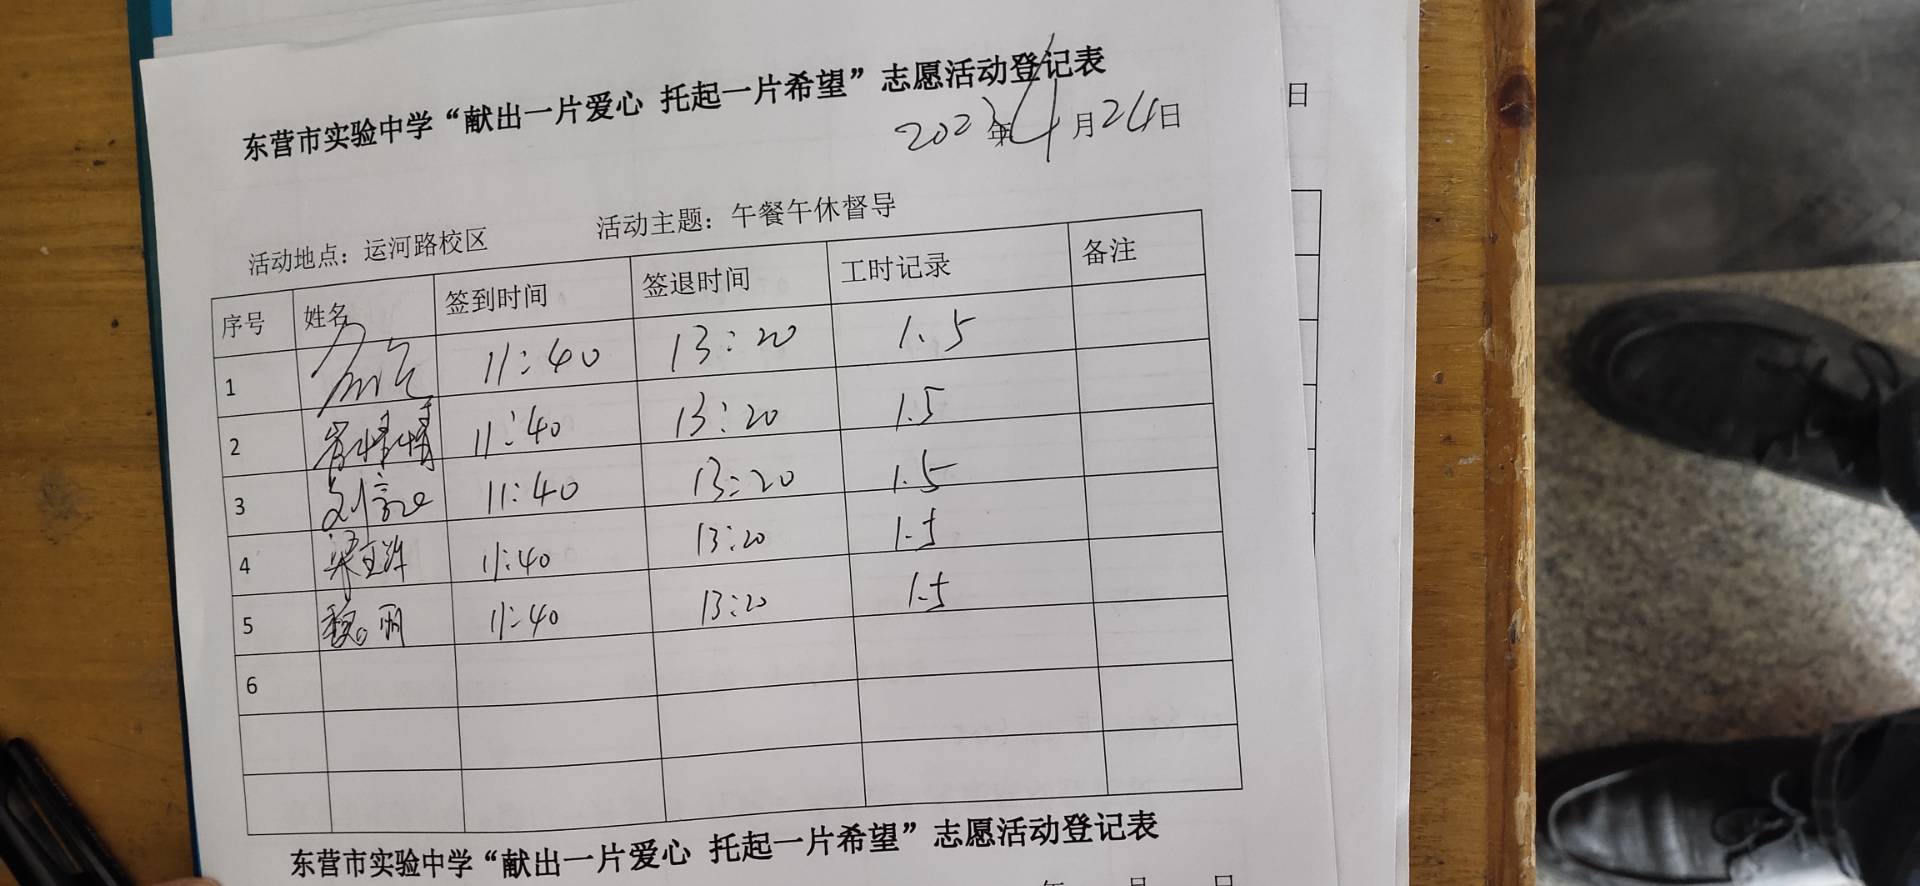 东营市实验中学“献出一片爱心 托起一片希望”志愿活动登记表
2023年4月24日
活动地点：运河路校区 活动主题：午餐午休督导
序号 姓名 签到时间 签退时间 工时记录 备注
1 11:40 13:20 1.5
2 11:40 13:20 1.5
3 11:40 13:20 1.5
4 11:40 13:20 1.5
5 魏丽 11:40 13:20 1.5
6
东营市实验中学“献出一片爱心 托起一片希望”志愿活动登记表
年 月 日
日